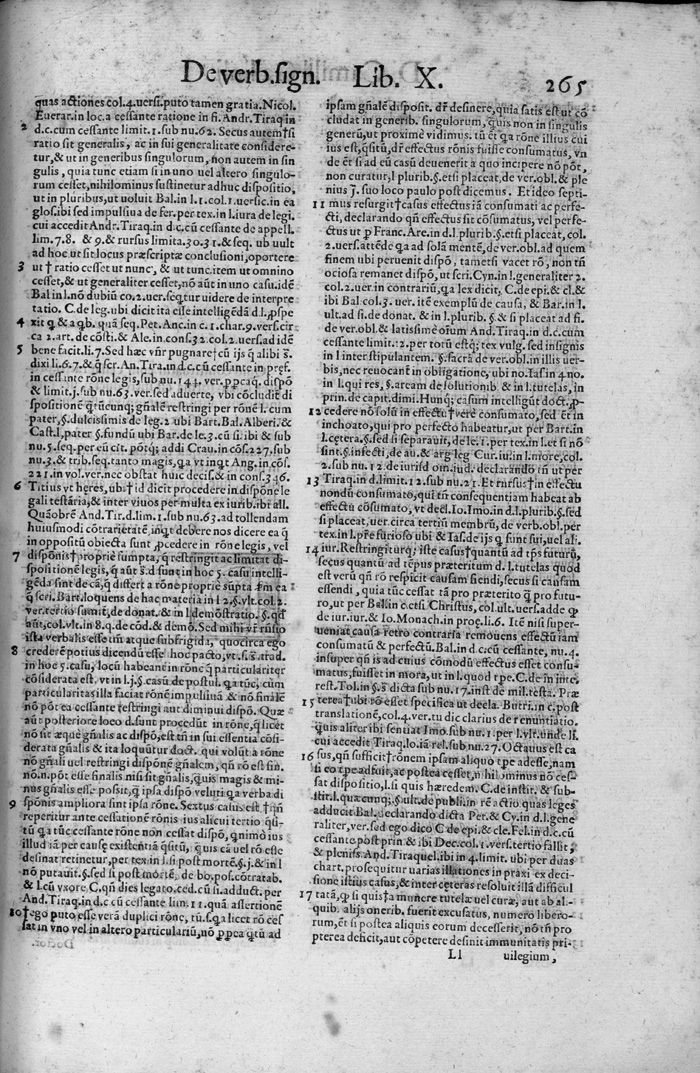 De verb. sign. Lib. X. 265
quas actiones col. 4. uersi. puto tamen gratia. Nicol.
Euerar. in loc. a cessante ratione in fi. Andr. Tiraq in
2 d.c. cum cessante limit. 1. sub nu. 62. Secus autem † si
ratio sit generalis, ac in sui generalitate considere-
tur, & ut in generibus singulorum, non autem in sin
gulis, quia tunc etiam si in uno uel altero singulo-
rum cesset, nihilominus sustinetur adhuc dispositio,
ut in pluribus, ut uoluit Bal. in l. 1. col. 1. uersic. in ea
glos. ibi sed impulsiua de fer. per tex. in l. iura de legi.
cui accedit Andr. Tiraq. in d.c. cū cessante de appell.
lim. 7. 8. & 9. & rursus limita. 30. 31. & seq. ub uult
ad hoc ut sit locus præscriptæ conclusioni, oportere
3 ut † ratio cesset ut nunc, & ut tunc, item ut omnino
cesset, & ut generaliter cesset, nō aūt in uno casu. idē
Bal in l. nō dubiū co. 2. uer. seqtur uidere de interpre
tatio. C. de leg. ubi dicit ita esse intelligēdā d.l. ꝓspe
4 xit q & a qb. quā seq. Pet. Anc. in c. 1. char. 9. vers. cir
ca 2. art. de cōsti. & Ale. in cons. 32. col. 2. uer. sed ad idē
5 bene facit. li. 7. Sed hæc vr̄ pugnare † cū ijs q̄ alibi s̄.
dixi li. 6. 7. & q̄ ser. An. Tira. in d.c. cū cessante in pref.
in cessante rōne legis, sub nu. 144. ver. ꝑpcaq. dispō
& limit. j. sub nu. 63. ver. sed aduerte, vbi cōcludit di
spositionē qūtūcunq; gñalē restringi per rōnē l. cum
pater, §. dulcissimis de leg. 2 ubi Bart. Bal. Alberi. &
Cast. l, pater §. fundū ubi Bar. de le. 3. cū si. ibi & sub
nu. 5. seq. per eū cit. pōtq; addi Crau. in cōs. 227. sub
nu. 3. & trib. seq. tanto magis, qa vt inqt Ang. in cōs.
221. in vol. ver. nec obstat huic decis. & in cons. 346.
6 Titius vt heres, ubi † id dicit procedere in dispōne le
gali testāria, & inter viuos per multa ex iurib. ibi all.
Quāobrē And. Tir. d. lim. 1. sub nu. 63. ad tollendam
huiusmodi cōtrarietātē inqt debere nos dicere ea q̄
in oppositū obiecta sunt ꝓcedere in rōne legis, vel
7 dispōnis † propriè sumpta, q̄ restringit ac limitat di-
spositionē legis, q̄ aūt s̄. d. sunt in hoc 5. casu intelli-
gēda sunt de cā, q̄ differt a rōne propriè supta
q̄ seri. Bart. loquens de hac materia in l 2. §. vlt. col. 2.
ver. tertio sumit, de donat. & in l. demōstratio. §. qd
aūt, col. vlt. in 8. q. de cōd. & demō. Sed mihi vr̄
ista verbalis esse tñ atque subfrigida, quocirca ego
8 crederē potius dicendū esse † hoc pacto, vt. si s̄. trad.
in hoc 5. casu, locū habeant in rōne q̄ particulariter
cōsiderata est. vt in l. j. §. casū de postul. q̄a tūc, cum
particularitas illa faciat rōnē impulsiuā & nō finalē
nō pōt ea cessante restringi aut diminui dispō. Quæ
aūt posteriore loco d. sunt procedūt in rōne, q̄ licet
nō sit æquè gñalis ac dispō, est tñ in sui essentia cōsi-
derata gñalis & ita loquūtur doct. qui volūt a rōne
nō gñali uel restringi dispōnē gñalem, qñ rō est fin.
nō. n. pōt esse finalis nisi sit gñalis, quis magis & mi-
nus gñalis esse possit, q̄ ipsa dispō veluti q̄a verba di
9 spōnis ampliora sint ipsa rōne. Sextus casus est † qñ
reperitur ante cessationē rōnis ius alicui tertio qsi-
tū qa tūc cessante rōne non cessat dispō, qnimò ius
illud iā per causę existentiā qsitū, quis cā uel rō esse
desinat retinetur, per tex in l. si post mortē. §. j. & in l
nō putauit. §. sed si post mortē, de bo. pos. cōtratab.
& l. cū vxore, C. qñ dies legato. ced. cū si. adduct. per
And. Tiraq. in d.c cū cessante lim. 11. quā assertionē
10 † ego puto esse verā duplici rōne, tū. f. qa licet rō ces
sat in vno vel in altero particulariū, nō ꝑpea qtū ad
ipsam gñalē disposit. dr̄ desinere, quia satis est ut cō
cludat in generib. singulorum, quis non in singulis
generū, ut proximè vidimus. tū ēt qa rōne illius cui
ius est, qsitū, dr̄ effectus rōnis fuisse consumatus, vn
de ēt si ad eū casū deuenerit a quo incipere nō pōt,
non curatur, l pluribus §. etsi placeat, de ver. obl. & ple
nius j. suo loco paulo post dicemus. Et ideo septi-
11 mus resurgit † casus effectus iā consumati ac perfe-
cti, declarando qñ effectus sit cōsumatus, vel perfe-
ctus ut p Franc. Are. in d. l. pluribus §. etsi placeat, col.
2. uer. attēde qa ad solā mentē, de ver. obl. ad quem
finem ubi peruenit dispō, tametsi vacet rō, non tñ
ociosa remanet dispō, ut scri. Cyn. in l. generaliter 2.
col. 2. uer. in contrariū, qa lex dicit, C de epi. & cl. &
ibi Bal col. 3. uer. itē exemplū de causa, & Bar. in l.
ult. ad fi. de donat. & in l. plurib. §. & si placeat ad fi.
de ver. obl. & latissimè oīum And. Tiraq. in d.c. cum
cessante limit. 2. per totū estq; tex. vulg. sed insignis
in l interstipulantem. §. sacrā de ver. obl. in illis uer-
bis, nec reuocant in obligatione, ubi no. Ias. in 4 no.
in l. qui res, §. aream de solutionib. & in l. tutelas, in
prin. de capit. dimi. Hunq; casum intelligūt doct. ꝓ-
12 cedere nō solū in effectu † vere consumato, sed ēt in
inchoato, qui pro perfecto habeatur, ut per Bart in
l. cetera. §. sed si separauit, de le. 1. per tex. in l. et si nō
sint. §. infecti, de au. & arg leg Cur. iu: in l. more, col.
2. sub nu. 12. de iurisd. oīn. iud. declarando tñ ut per
13 Tiraq. in d. limit. 12. sub nu. 21. Et rursus † in effectu
nondū consumato, qui tñ consequentiam habeat ab
effectu cōsumato, vt decl. Io. Imo. in d. l. pluribus, §. sed
si placeat, uer. circa tertiū membrū, de verb. obl. per
tex. in l. pr̄e furioso ubi & Ias. de ijs q̄ sunt sui, uel ali.
14 iur. Restringiturq; iste casus † quantū ad tps futurū,
secus quantū ad tēpus præteritum d. l. tutelas quod
est verū qñ rō respicit causam siendi, secus si causam
essendi, quia tūc cessat tā pro præterito q̄ pro futu-
ro, ut per Bal. in c. etsi Christus, col. ult. uers. adde q
de iur. iur. & Io. Monach. in proę. li. 6. Itē nisi super-
ueniat causa retro contraria remouens effectū iam
consumatū & perfectū. Bal. in d.c. cū cessante, nu. 4.
insuper qñ is ad cuius cōmodū effectus esset consu-
matus, fuisset in mora, ut in l. quod t pe. C. de in inte.
rest. Tol. in §. s̄ dicta sub nu. 17. inst de mil. testa. Præ
15 terea † ubi rō esset specifica ut decla. Butri. in c. post
translationē, col. 4. ver. tu dic clarius de renuntiatio.
quis aliter ibi sentiat Imo. sub nu. 1. per l. vlt. unde li.
cui accedit Tiraq. lo. iā rel. sub nu. 27. Octauus est ca
16 sus, qñ sufficit † rōnem ipsam aliquo tpe adesse, nam
si eo tpe adfuit, ac postea cesset, nihilominus nō ces-
sat dispositio, l. si quis hæredem. C. de instit. & sub-
stit. l. quæcunq; §. ult. de publi. in rē actio quas leges
adducit Bal. declarando dicta Pet. & Cy. in d. l. gene
raliter, ver. sed ego dico C de epi. & cle. Fel. in d.c. cū
cessante post prin & ibi Dec. col. 1. vers. tertio fallit,
& pleniss. And. Tiraquel. ibi in 4. limit. ubi per duas
chart. prosequitur uarias illationes in praxi ex deci-
sione istius casus, & inter ceteras resoluit illā difficul
17 tatā, q si quis † a munere tutelæ uel curæ, aut ab ali-
quib. alijs onerib. fuerit excusatus, numero libero-
rum, ēt si postea aliquis eorum decesserit, nō tñ pro
pterea deficit, aut cōpetere desinit immunitatis pri-
Ll uilegium,